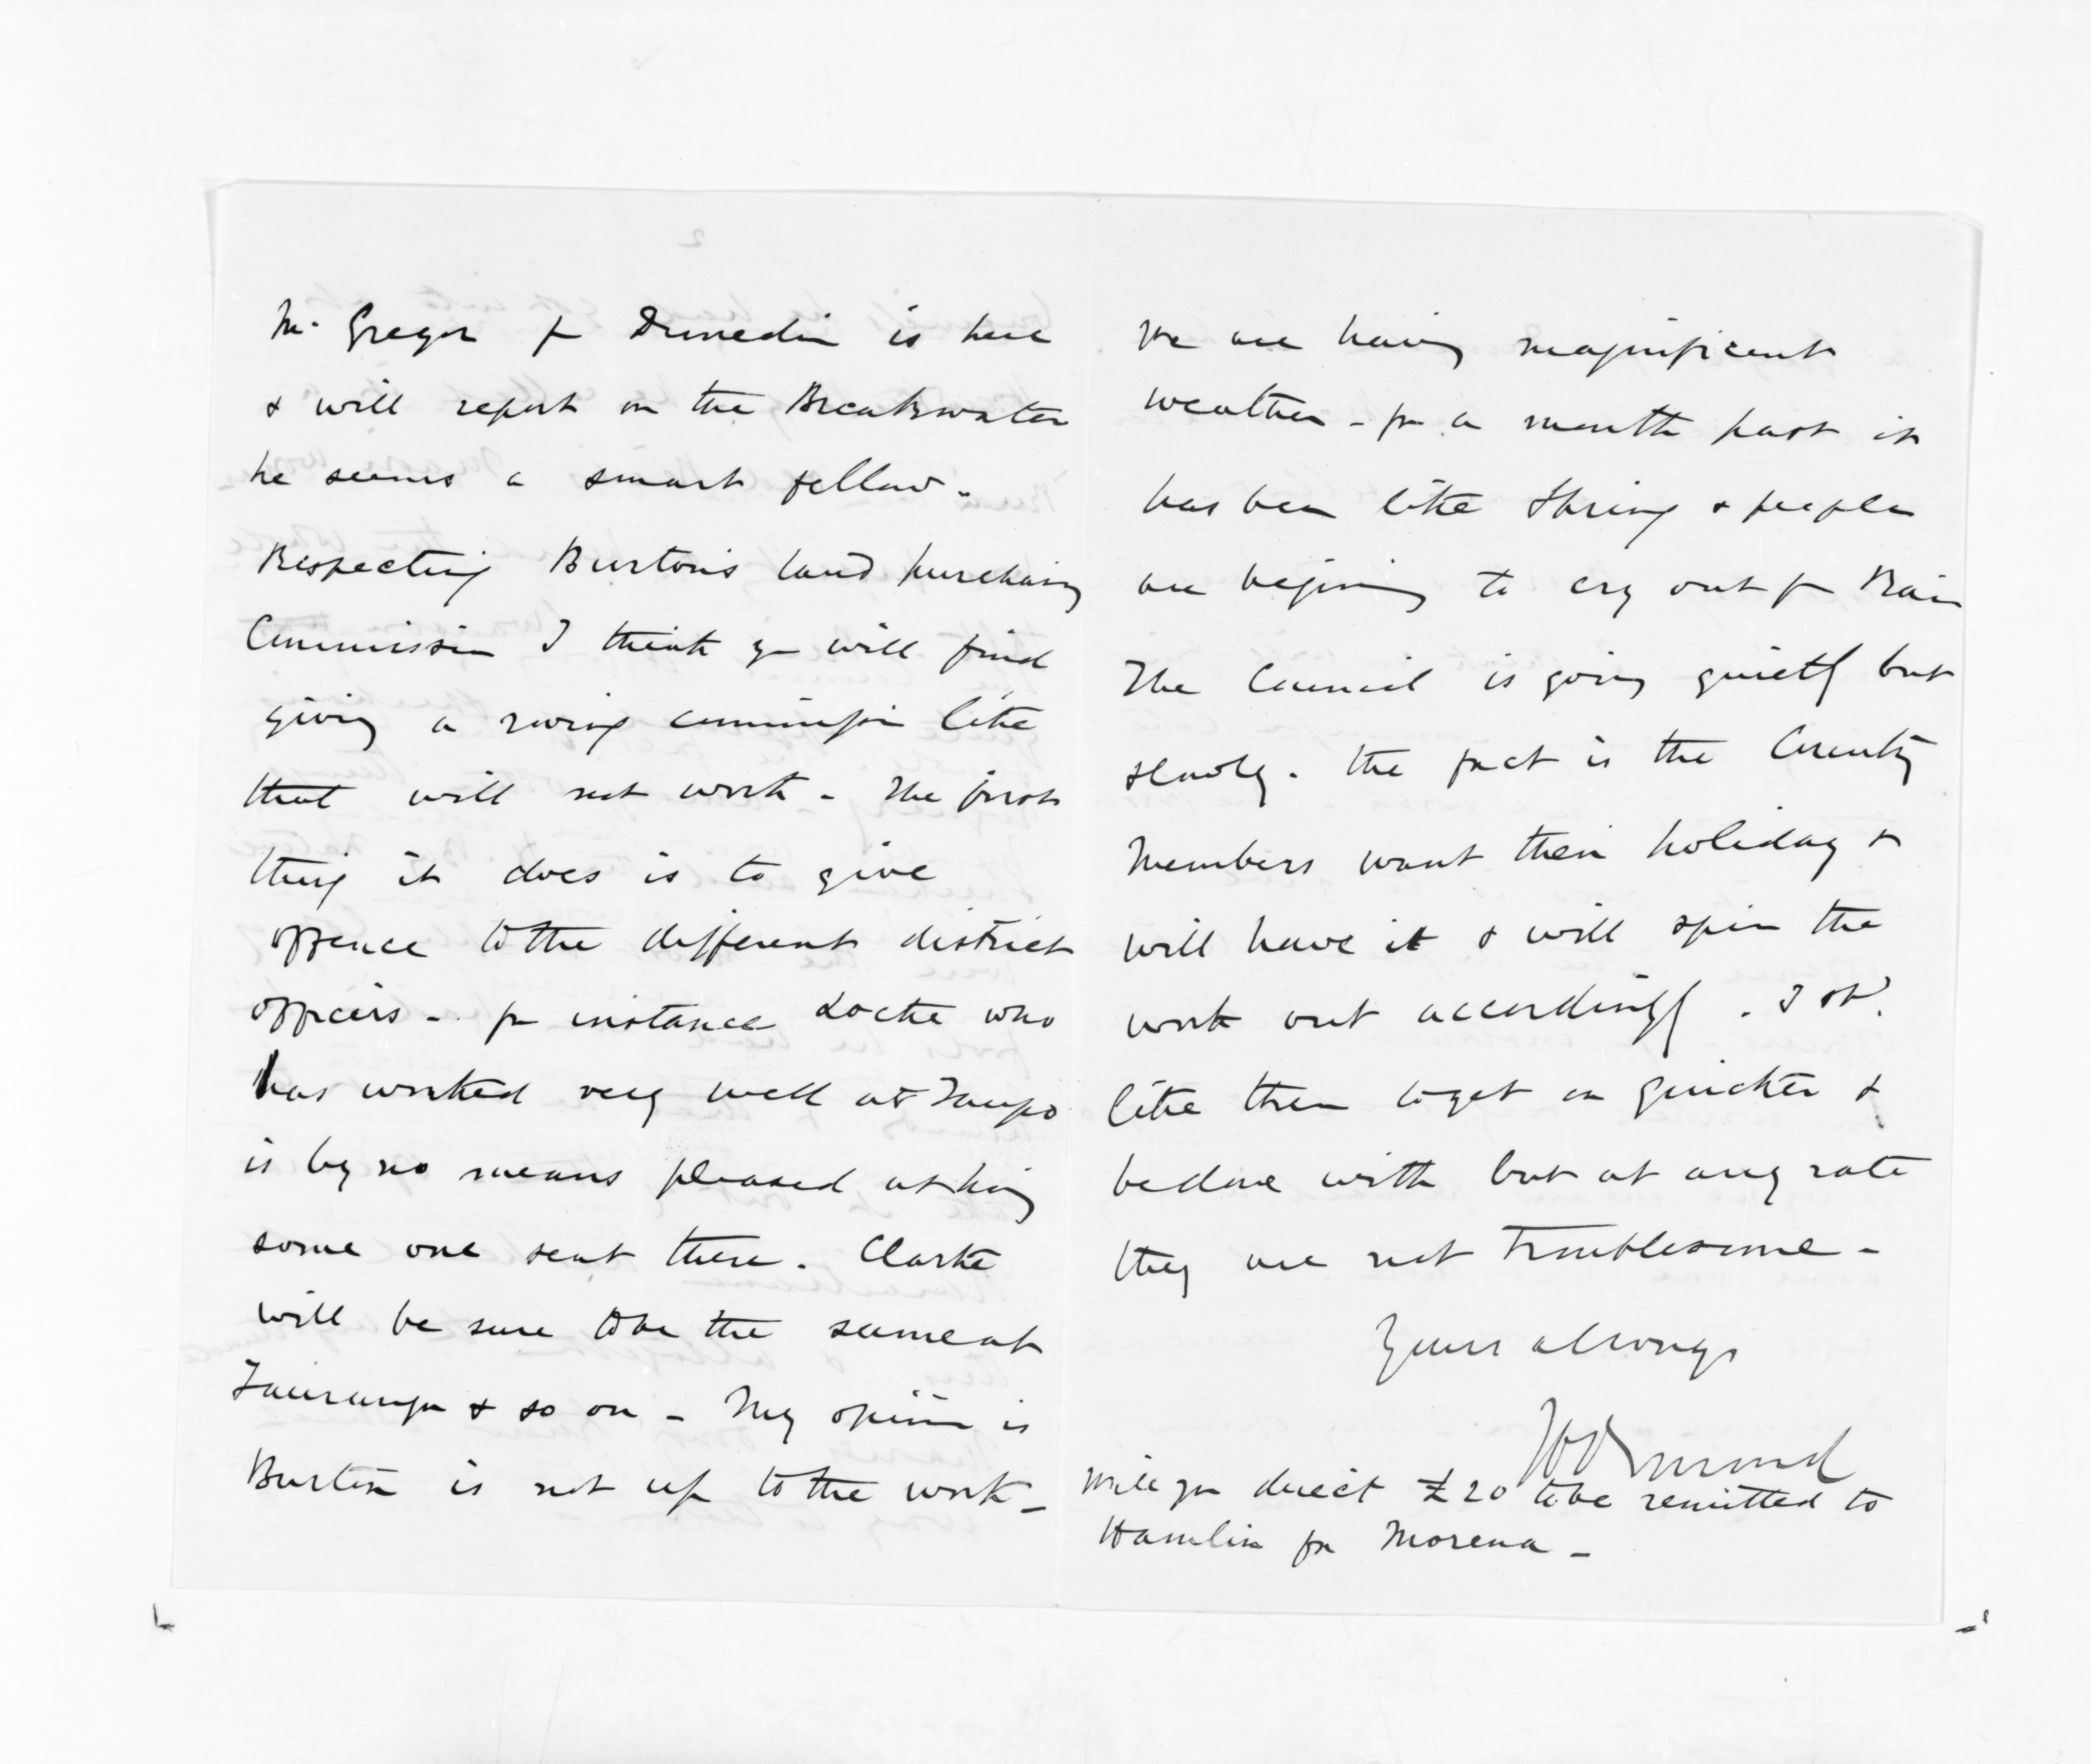 McGregor fr Dunedin is here
& will report on the Breakwater
he seems a smart fellow -
Respecting Burton's land purchasing
Commission I think you will find
giving a roving commission like
that will not work - The first
thing it does is to give
offence to the different district
officers - for instance Locke who
has worked very well at Taupo
is by no means pleased at having
some one sent there. Clarke
will be sure to be the same at
Tauranga & so on - My opinion is
Burton is not up to the work -
We are having magnificent
weather - for a month past it
has been like Spring & people
are beginning to cry out for Rain
The Council is going quietly but
slowly. The fact is the Country
Members want their holiday &
will have it & will spin the
work out accordingly. I shd.
like them to get on quicker &
be done with but at any rate
they are not troublesome -
Yours always
JD Ormond
Will you direct £20 to be remitted to
Hamlin for Morena -
2